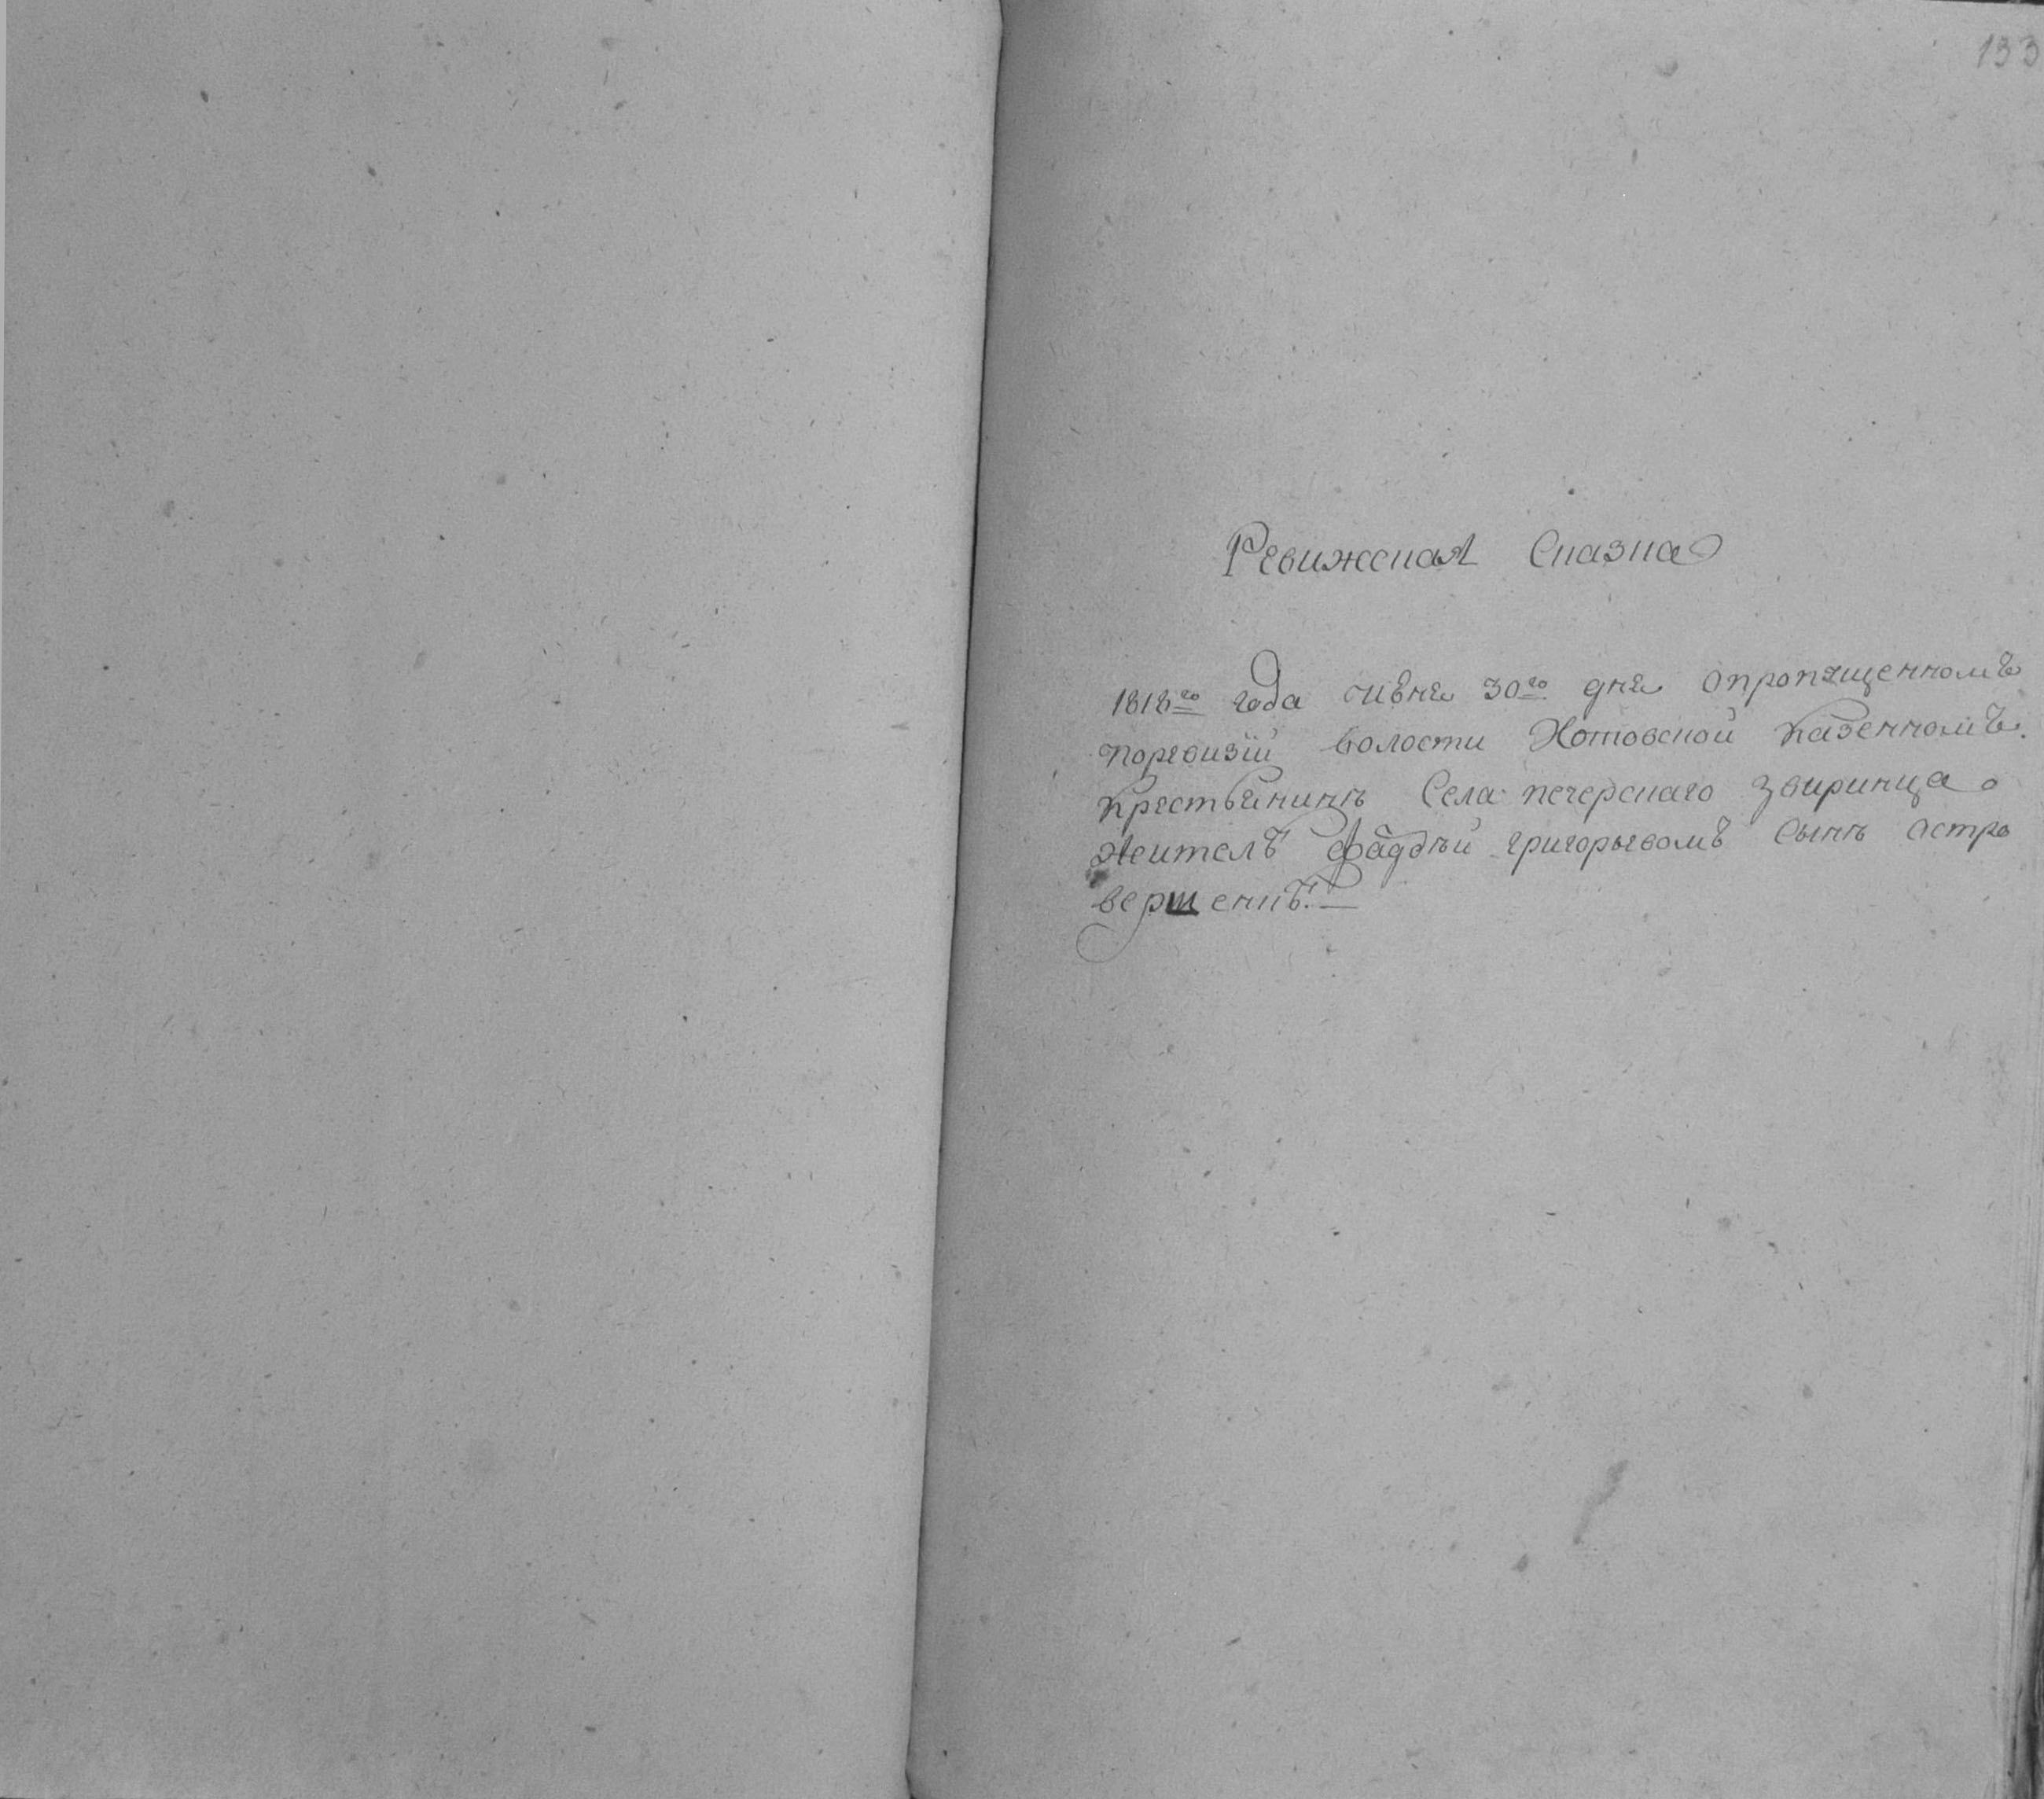 133
Ревижская Сказка
1818го года июня 30го дня опропущенномъ
поревизïи волости Хотовской казенномъ
крестьянинъ Села печерскаго звиринца
жителъ фаддѣй григорьевомъ сынъ остро
вершенкѣ.